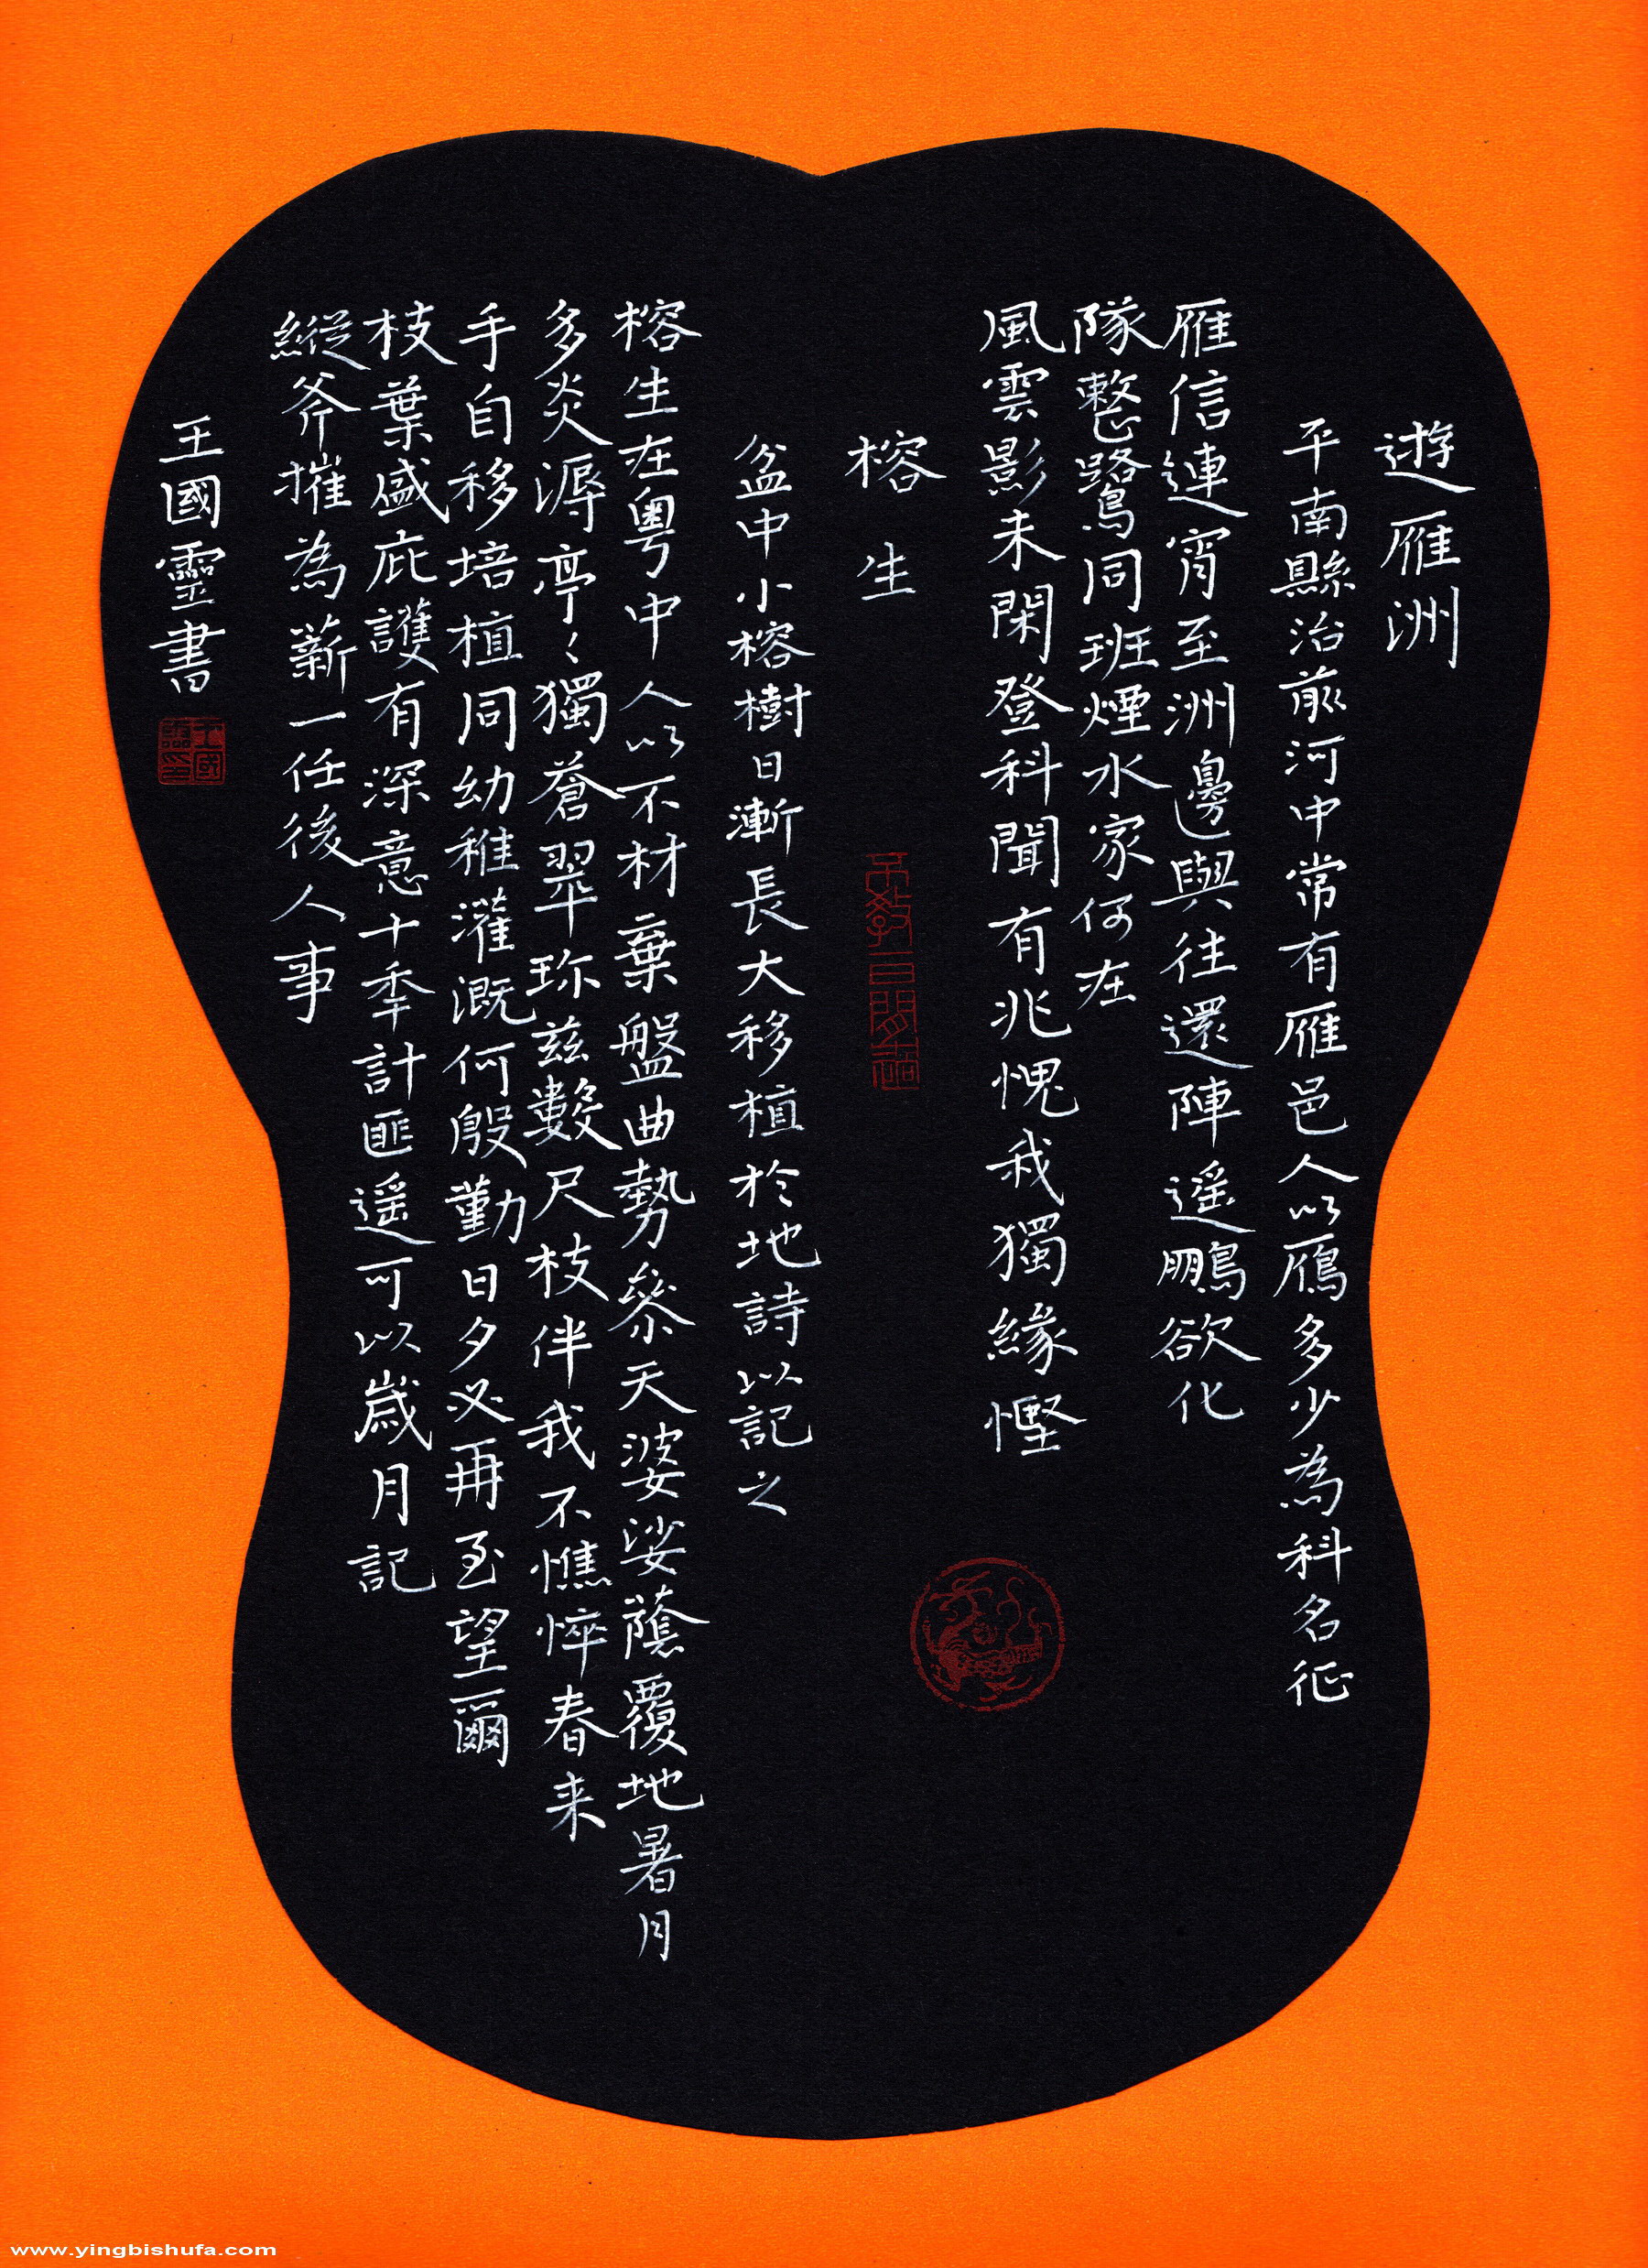 遊雁洲
平南縣治前河中常有雁邑人以鴈多少為科名征
雁信連宵至洲邊與往還陣遥鵬欲化
隊整鷺同班煙水家何在
風雲影未閑登科聞有兆愧我獨緣慳
榕生
盆中小榕樹日漸長大移植於地詩以記之
榕生在粤中人以不材棄盤曲勢叅天婆娑蔭覆地暑月
多炎溽亭〻獨蒼翠珎兹數尺枝伴我不憔悴春来
手自移培植同幼稚灌溉何殷勤日夕必再至望爾
枝葉盛庇護有深意十年計匪遥可以歲月記
縱斧摧為薪一任後人事
王國靈書
www.yingbishufa.com